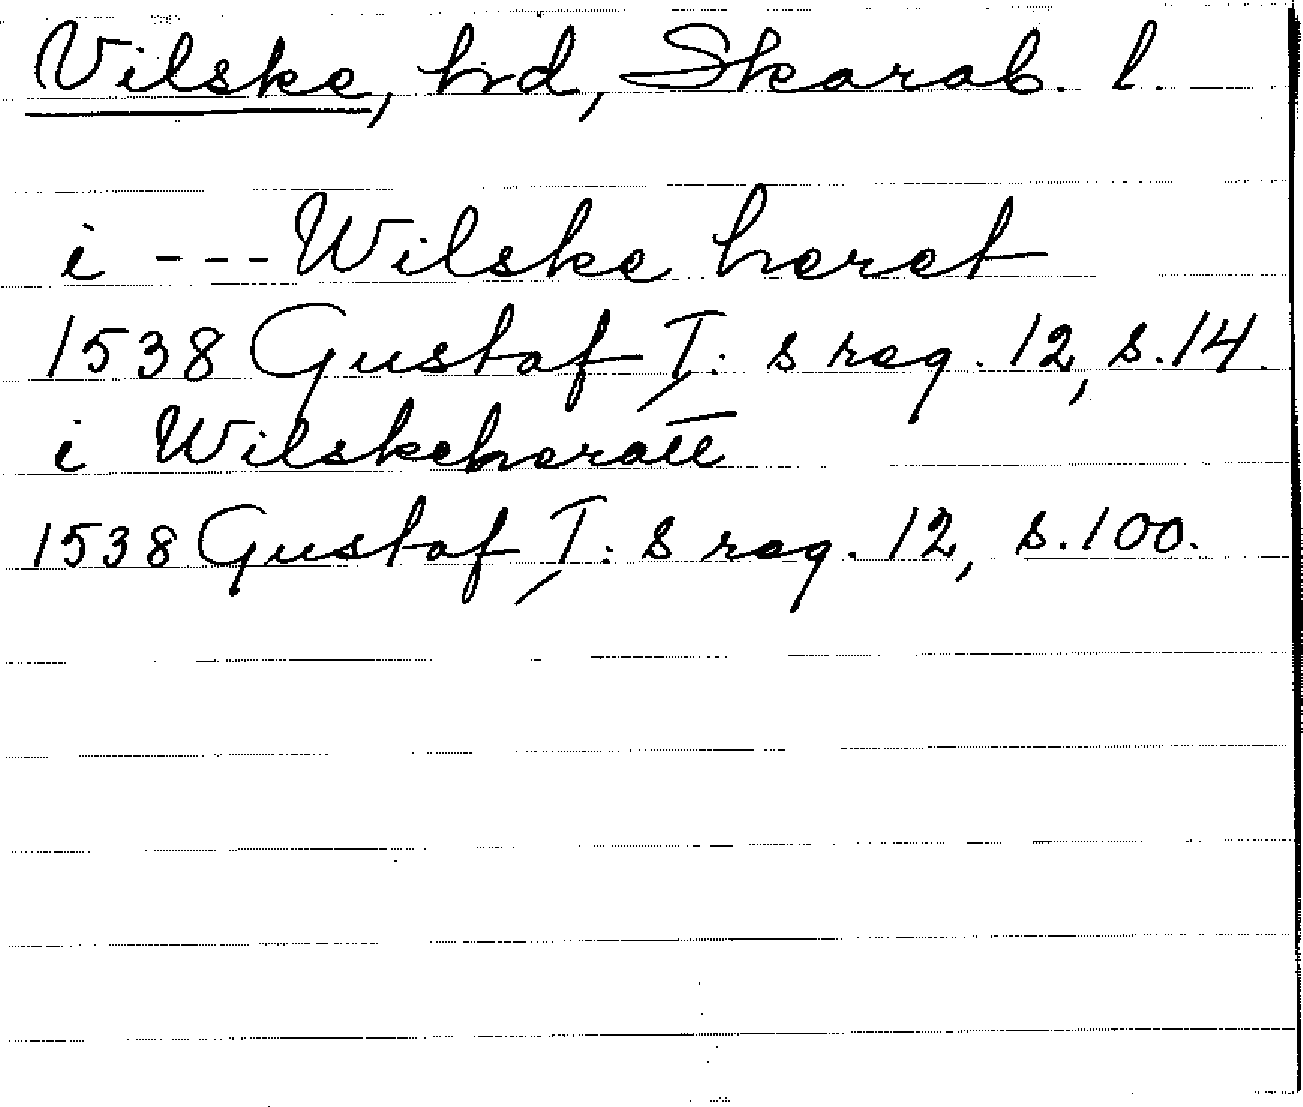 Vilske, hrd, Skarab. l.
i --- Wilske heret
1538 Gustaf I: s reg. 12, s. 14.
i Wilskeheratt
1538 Gustaf I: s reg. 12, s. 100.